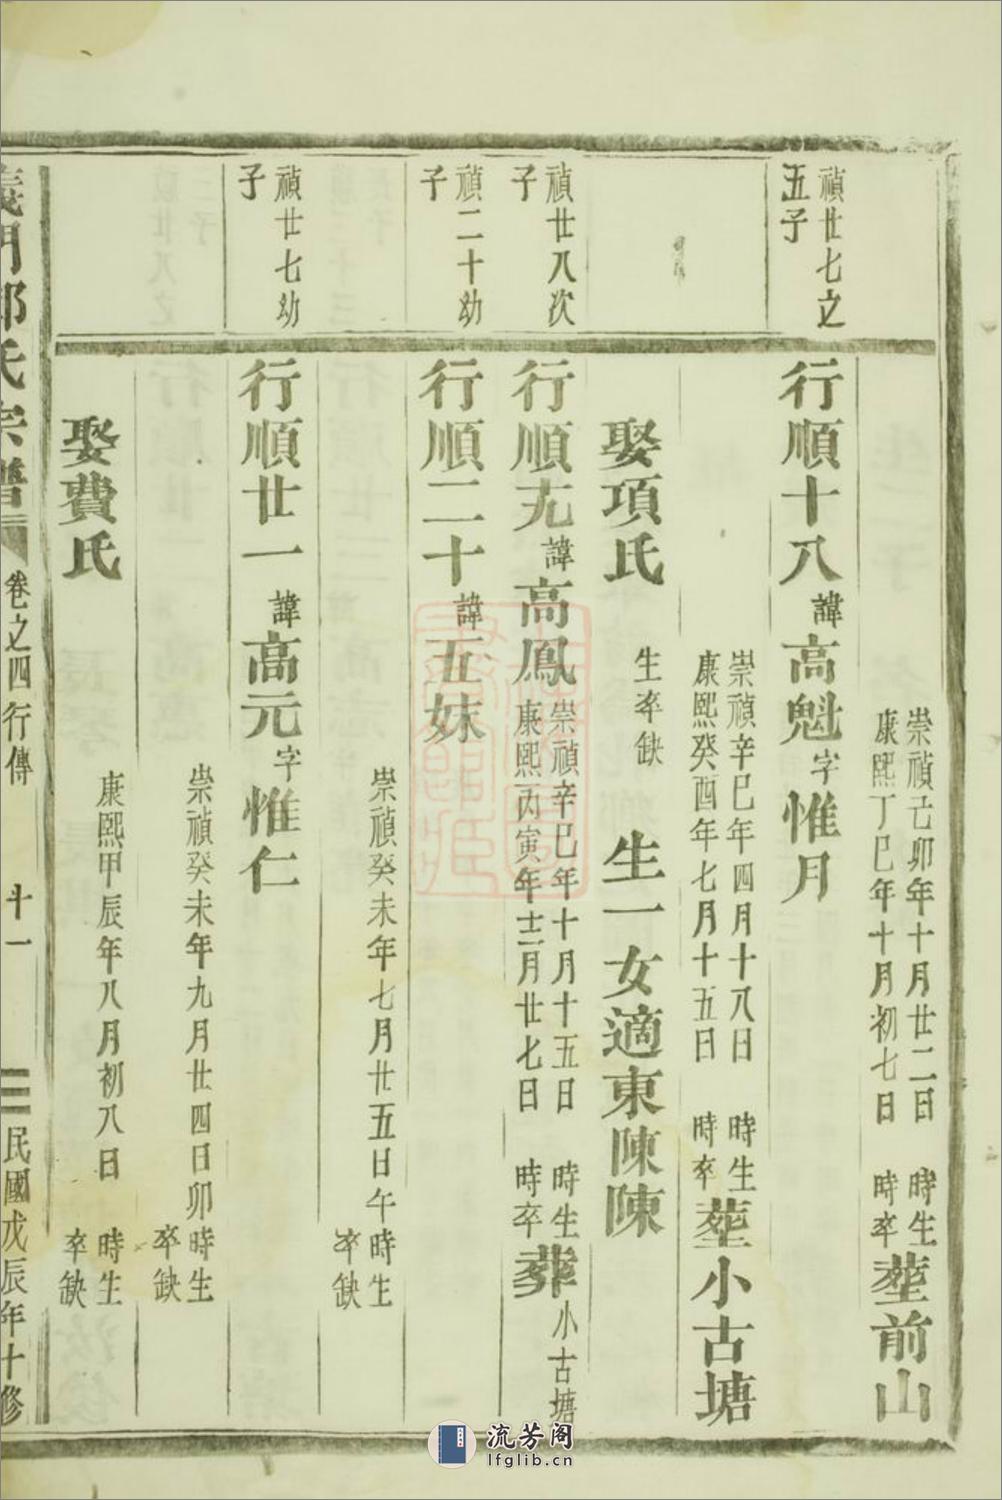 崇禎己卯年十月廿二日 時生
康熙丁巳年十月初七日 時卒
塟前山
禎廿七之
五子
行順十八諱高魁字惟月
崇禎辛巳年四月十八日 時生
康熙癸酉年七月十五日 時卒
塟小古塘
娶項氏 生卒缺 生一女適東陳陳
禎廿八次
子
行順兂諱高鳳
崇禎辛巳年十月十五日 時生
康熙丙寅年十二月廿七日 時卒
葬小古塘
禎二十幼
子
行順二十諱五妹
崇禎癸未年七月廿五日午時生
卒缺
禎廿七幼
子
行順廿一諱高元字惟仁
崇禎癸未年九月廿四日卯時生
卒缺
娶費氏
康熙甲辰年八月初八日 時生
卒缺
義門郭氏宗譜 卷之四行傳 十一 民國戊辰年十修
流芳阁
lfglib.cn